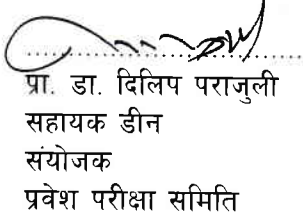 प्रा. डा. दिलिप पराजुली
सहायक डीन
संयोजक
प्रवेश परीक्षा समिति